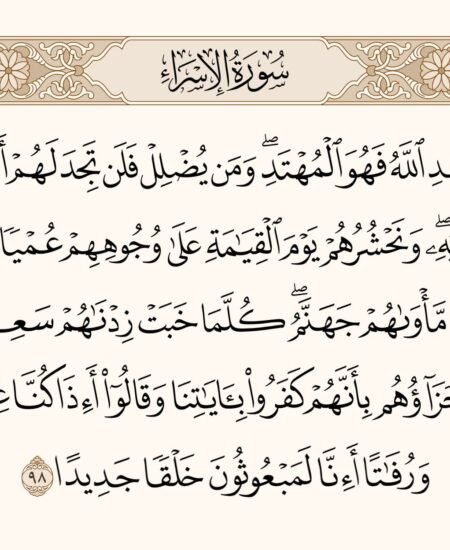 سُورَةُ الإِسۡرَاءِ
ٱللَّهُ فَهُوَ ٱلۡمُهۡتَدِۖ وَمَن يُضۡلِلۡ فَلَن تَجِدَ لَهُمۡ
وَنَحۡشُرُهُمۡ يَوۡمَ ٱلۡقِيَٰمَةِ عَلَىٰ وُجُوهِهِمۡ عُمۡيٗا
مَّأۡوَىٰهُمۡ جَهَنَّمُۖ كُلَّمَا خَبَتۡ زِدۡنَٰهُمۡ سَعِ
جَزَآؤُهُم بِأَنَّهُمۡ كَفَرُواْ بِـَٔايَٰتِنَا وَقَالُوٓاْ أَءِذَا كُنَّا عِ
وَرُفَٰتًا أَءِنَّا لَمَبۡعُوثُونَ خَلۡقٗا جَدِيدًا ٩٨